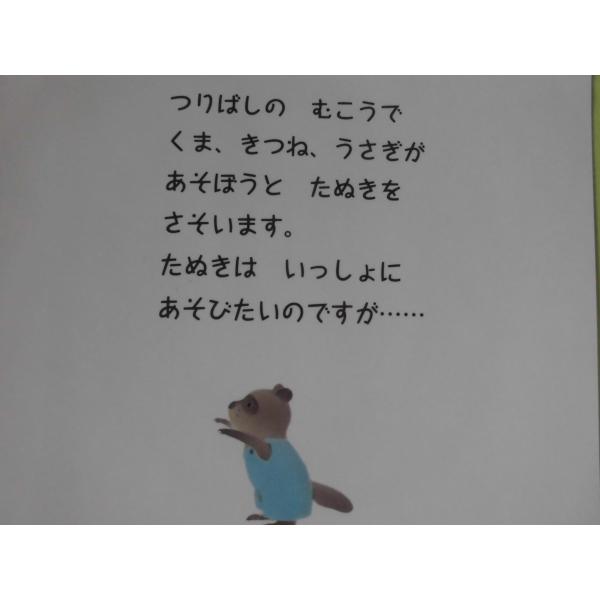 つりばしの　むこうで
くま、きつね、うさぎが
あそぼうと　たぬきを
さそいます。
たぬきは　いっしょに
あそびたいのですが……